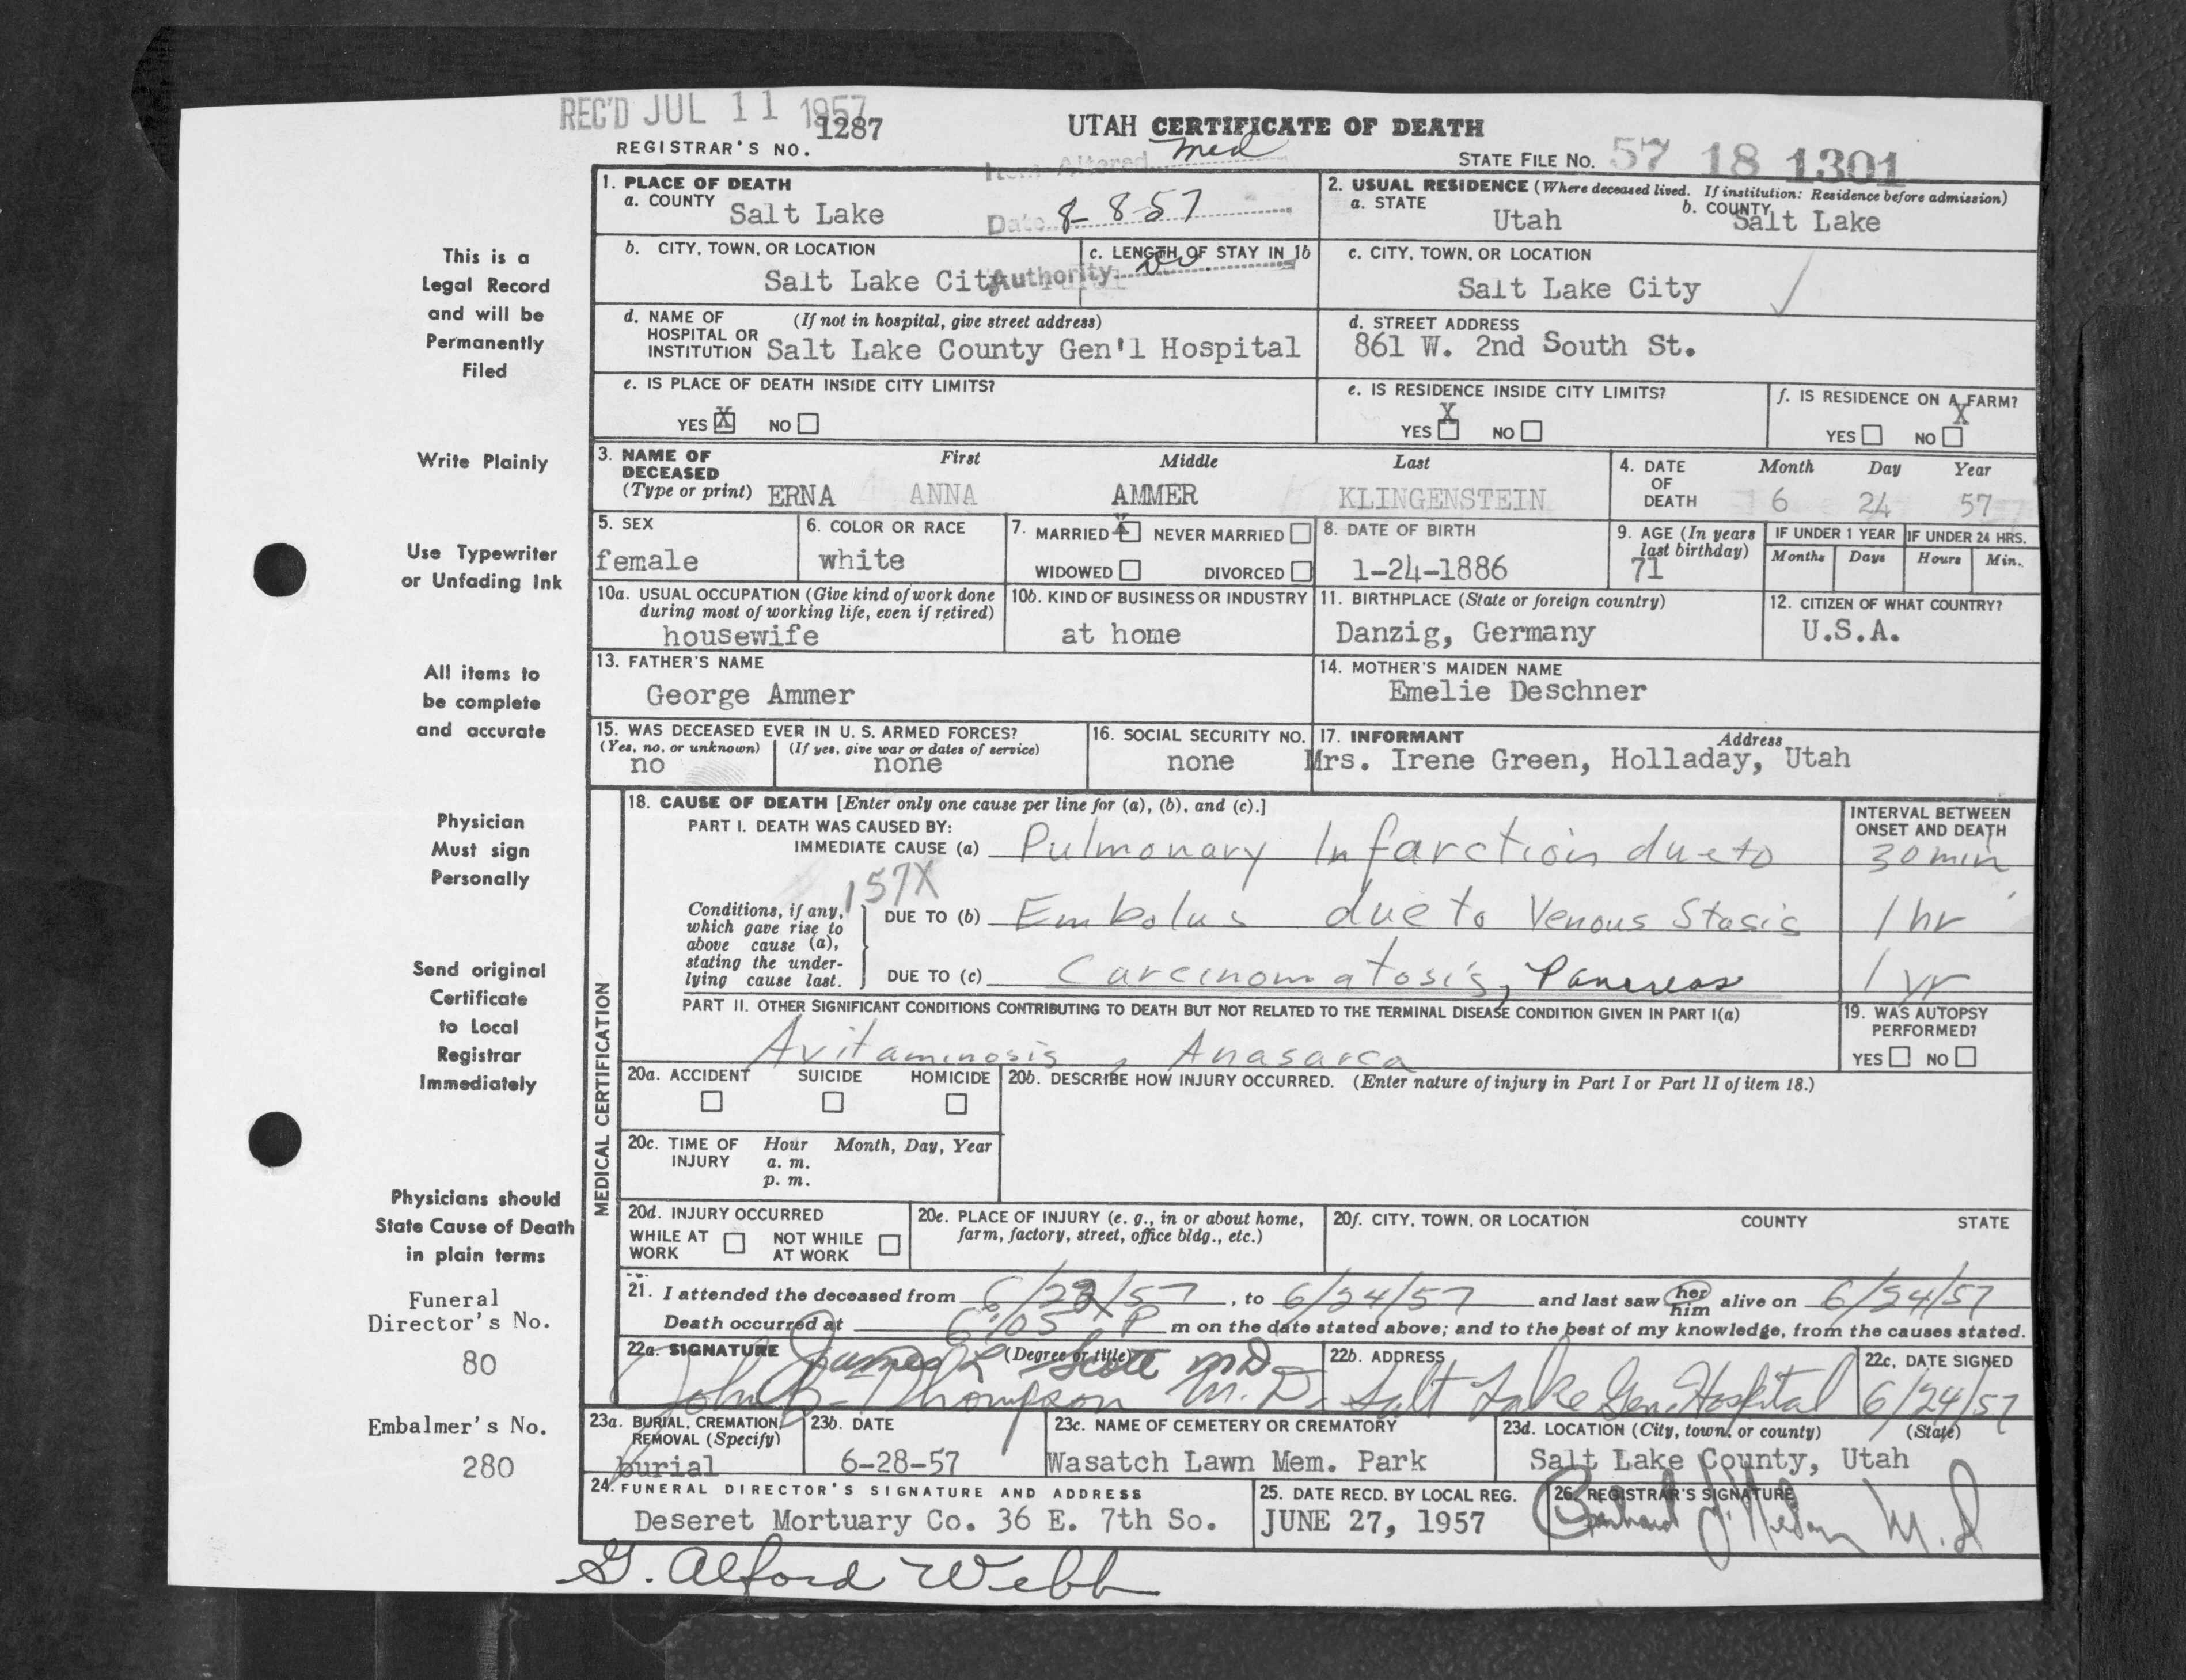 REC'D JUL 11 1957
1287
REGISTRAR'S NO.
UTAH CERTIFICATE OF DEATH
Item Altered med
STATE FILE No. 57 18 1301
1. PLACE OF DEATH
a. COUNTY Salt Lake
Date 8-8-57
2. USUAL RESIDENCE (Where deceased lived. If institution: Residence before admission)
a. STATE Utah
b. COUNTY Salt Lake
b. CITY, TOWN, OR LOCATION
Salt Lake City
c. LENGTH OF STAY IN 1b
Authority
c. CITY, TOWN, OR LOCATION
Salt Lake City
d. NAME OF HOSPITAL OR INSTITUTION (If not in hospital, give street address)
Salt Lake County Gen'l Hospital
d. STREET ADDRESS
861 W. 2nd South St.
e. IS PLACE OF DEATH INSIDE CITY LIMITS?
YES X NO
e. IS RESIDENCE INSIDE CITY LIMITS?
YES X NO
f. IS RESIDENCE ON A FARM?
YES NO X
3. NAME OF DECEASED (Type or print)
First Middle Last
ERNA ANNA AMMER KLINGENSTEIN
4. DATE OF DEATH
Month Day Year
6 24 57
5. SEX
female
6. COLOR OR RACE
white
7. MARRIED X NEVER MARRIED
WIDOWED DIVORCED
8. DATE OF BIRTH
1-24-1886
9. AGE (In years last birthday)
71
IF UNDER 1 YEAR
Months Days
IF UNDER 24 HRS.
Hours Min.
10a. USUAL OCCUPATION (Give kind of work done during most of working life, even if retired)
housewife
10b. KIND OF BUSINESS OR INDUSTRY
at home
11. BIRTHPLACE (State or foreign country)
Danzig, Germany
12. CITIZEN OF WHAT COUNTRY?
U.S.A.
13. FATHER'S NAME
George Ammer
14. MOTHER'S MAIDEN NAME
Emelie Deschner
15. WAS DECEASED EVER IN U. S. ARMED FORCES?
(Yes, no, or unknown) (If yes, give war or dates of service)
no none
16. SOCIAL SECURITY NO.
none
17. INFORMANT Address
Mrs. Irene Green, Holladay, Utah
MEDICAL CERTIFICATION
18. CAUSE OF DEATH [Enter only one cause per line for (a), (b), and (c).]
INTERVAL BETWEEN ONSET AND DEATH
PART I. DEATH WAS CAUSED BY:
IMMEDIATE CAUSE (a) Pulmonary Infarction due to 30 min
157X
Conditions, if any, which gave rise to above cause (a), stating the underlying cause last.
DUE TO (b) Embolus due to Venous Stasis 1 hr
DUE TO (c) Carcinomatosis, Pancreas 1 yr
PART II. OTHER SIGNIFICANT CONDITIONS CONTRIBUTING TO DEATH BUT NOT RELATED TO THE TERMINAL DISEASE CONDITION GIVEN IN PART I(a)
Avitaminosis, Anasarca
19. WAS AUTOPSY PERFORMED?
YES NO
20a. ACCIDENT SUICIDE HOMICIDE
20b. DESCRIBE HOW INJURY OCCURRED. (Enter nature of injury in Part I or Part II of item 18.)
20c. TIME OF INJURY Hour Month, Day, Year
a. m.
p. m.
20d. INJURY OCCURRED
WHILE AT WORK NOT WHILE AT WORK
20e. PLACE OF INJURY (e. g., in or about home, farm, factory, street, office bldg., etc.)
20f. CITY, TOWN, OR LOCATION COUNTY STATE
21. I attended the deceased from 6/23/57, to 6/24/57 and last saw her him alive on 6/24/57
Death occurred at 6:05 P m on the date stated above; and to the best of my knowledge, from the causes stated.
22a. SIGNATURE (Degree or title)
James L Scott MD
John B. Thompson M.D.
22b. ADDRESS
Salt Lake Gen. Hospital
22c. DATE SIGNED
6/24/57
23a. BURIAL, CREMATION, REMOVAL (Specify)
burial
23b. DATE
6-28-57
23c. NAME OF CEMETERY OR CREMATORY
Wasatch Lawn Mem. Park
23d. LOCATION (City, town, or county) (State)
Salt Lake County, Utah
24. FUNERAL DIRECTOR'S SIGNATURE AND ADDRESS
Deseret Mortuary Co. 36 E. 7th So.
25. DATE RECD. BY LOCAL REG.
JUNE 27, 1957
26. REGISTRAR'S SIGNATURE
M.D
G. Alford Webb
This is a
Legal Record
and will be
Permanently
Filed
Write Plainly
Use Typewriter
or Unfading Ink
All items to
be complete
and accurate
Physician
Must sign
Personally
Send original
Certificate
to Local
Registrar
Immediately
Physicians should
State Cause of Death
in plain terms
Funeral
Director's No.
80
Embalmer's No.
280